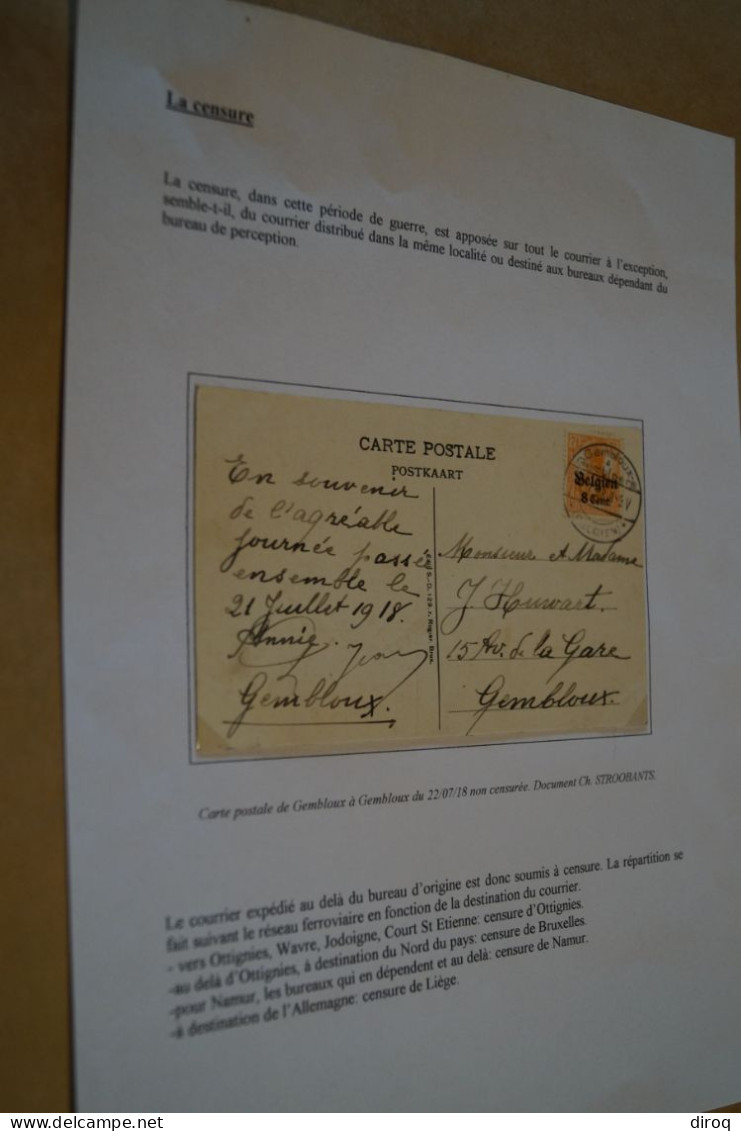 La censure
La censure, dans cette période de guerre, est apposée sur tout le courrier à l'exception,
semble-t-il, du courrier distribué dans la même localité ou destiné aux bureaux dépendant du
bureau de perception.
CARTE POSTALE
POSTKAART
En souvenir
de l'agréable
journée passée
ensemble le
21 Juillet 1918.
Annie. Jean
Gembloux.
Belgien
8 Cent.
Gembloux
Monsieur et Madame
J. Huwart.
15 Av. de la Gare
Gembloux.
Carte postale de Gembloux à Gembloux du 22/07/18 non censurée. Document Ch. STROOBANTS.
Le courrier expédié au delà du bureau d'origine est donc soumis à censure. La répartition se
fait suivant le réseau ferroviaire en fonction de la destination du courrier.
- vers Ottignies, Wavre, Jodoigne, Court St Etienne: censure d'Ottignies.
-au delà d'Ottignies, à destination du Nord du pays: censure de Bruxelles.
-pour Namur, les bureaux qui en dépendent et au delà: censure de Namur.
-à destination de l'Allemagne: censure de Liège.
delcampe.net
diroq